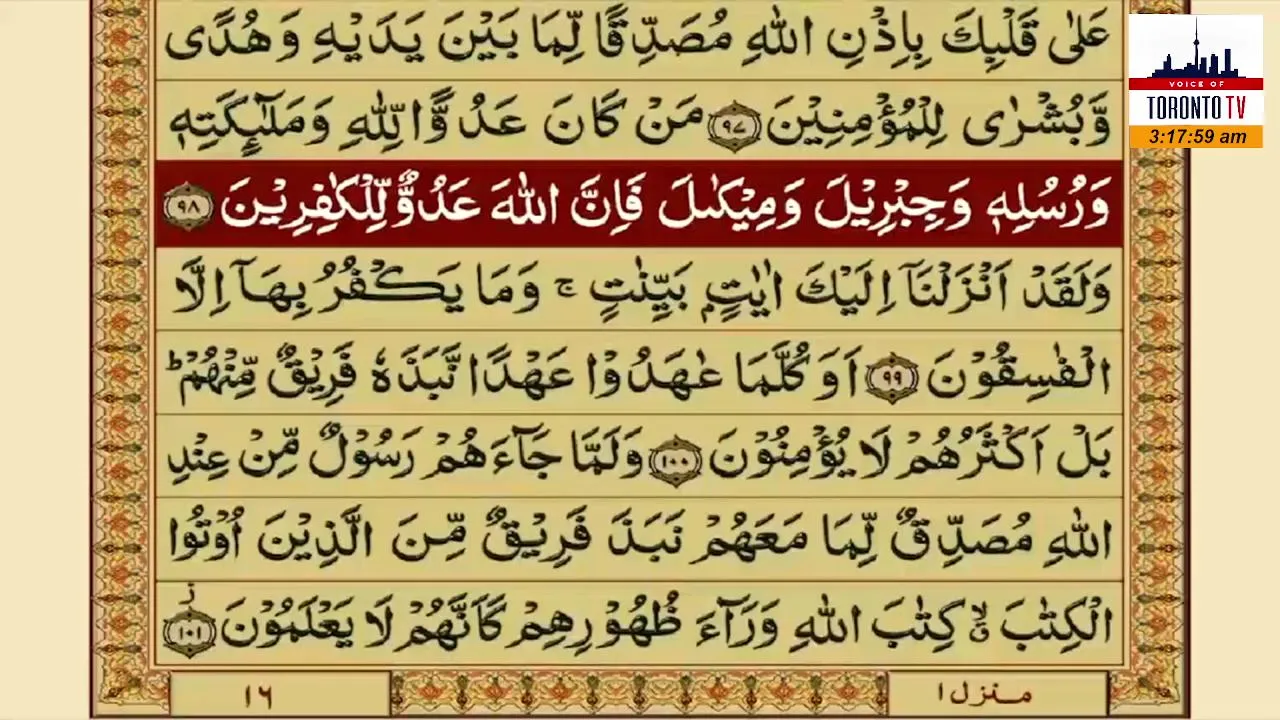 عَلٰى قَلْبِكَ بِاِذْنِ اللّٰهِ مُصَدِّقًا لِّمَا بَيْنَ يَدَيْهِ وَهُدًى
وَّبُشْرٰى لِلْمُؤْمِنِيْنَ ۝٩٧ مَنْ كَانَ عَدُوًّا لِّلّٰهِ وَمَلٰٓئِكَتِهٖ
وَرُسُلِهٖ وَجِبْرِيْلَ وَمِيْكٰىلَ فَاِنَّ اللّٰهَ عَدُوٌّ لِّلْكٰفِرِيْنَ ۝٩٨
وَلَقَدْ اَنْزَلْنَآ اِلَيْكَ اٰيٰتٍۭ بَيِّنٰتٍ ۚ وَمَا يَكْفُرُ بِهَآ اِلَّا
الْفٰسِقُوْنَ ۝٩٩ اَوَكُلَّمَا عٰهَدُوْا عَهْدًا نَّبَذَهٗ فَرِيْقٌ مِّنْهُمْ ؕ
بَلْ اَكْثَرُهُمْ لَا يُؤْمِنُوْنَ ۝١٠٠ وَلَمَّا جَآءَهُمْ رَسُوْلٌ مِّنْ عِنْدِ
اللّٰهِ مُصَدِّقٌ لِّمَا مَعَهُمْ نَبَذَ فَرِيْقٌ مِّنَ الَّذِيْنَ اُوْتُوا
الْكِتٰبَ ۙۗ كِتٰبَ اللّٰهِ وَرَآءَ ظُهُوْرِهِمْ كَاَنَّهُمْ لَا يَعْلَمُوْنَ ؗ ۝١٠١
منزل ١
١٦
VOICE OF
TORONTO TV
3:17:59 am